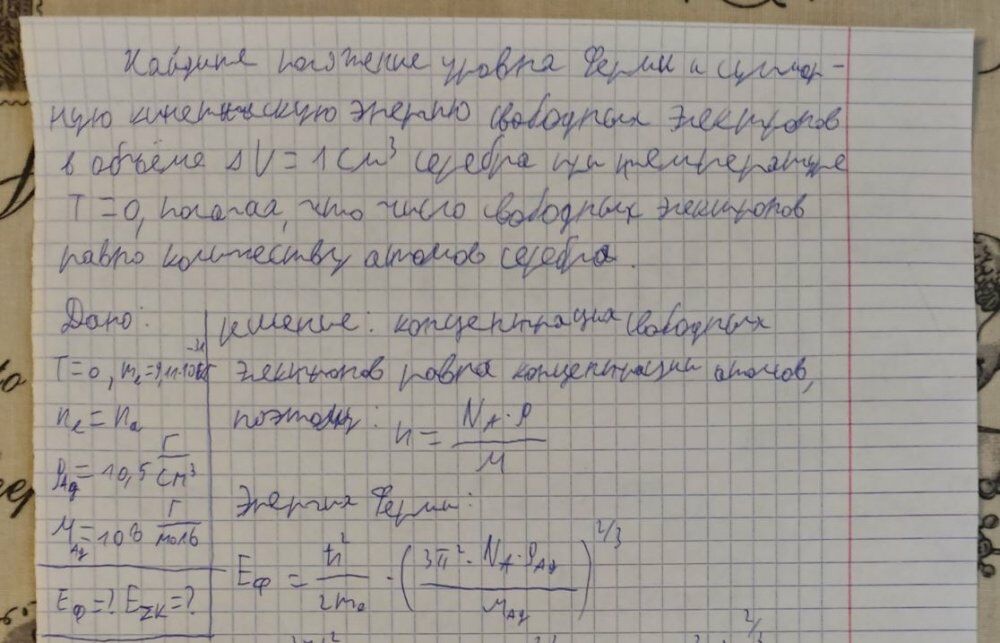 Найдите положение уровня Ферми и суммар-
ную кинетическую энергию свободных электронов
в объёме ΔV = 1 см³ серебра при температуре
T = 0, полагая, что число свободных электронов
равно количеству атомов серебра.
Дано:
T = 0, mₑ = 9,11·10⁻³¹ кг
nₑ = nₐ
ρ_Ag = 10,5 г/см³
M_Ag = 108 г/моль
E_Ф = ? E_ΣK = ?
Решение: концентрация свободных
электронов равна концентрации атомов,
поэтому: n = N_A·ρ/M
Энергия Ферми:
E_Ф = ħ²/2m₀ · (3π²·N_A·ρ_Ag/M_Ag)^2/3